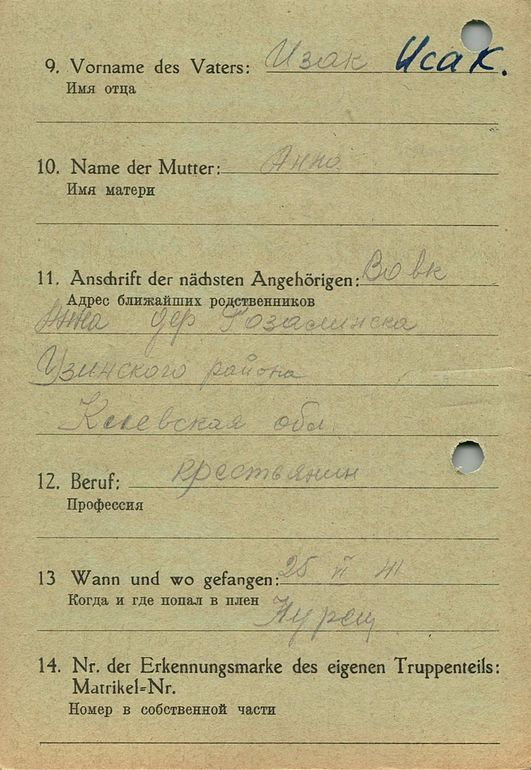 9. Vorname des Vaters: Изак Исак.
Имя отца
10. Name der Mutter: Анна
Имя матери
11. Anschrift der nächsten Angehörigen: Вовк
Адрес ближайших родственников
Анна дер Розалинска
Узинского района
Киевская обл.
12. Beruf: крестьянин
Профессия
13 Wann und wo gefangen: 25 VI 41
Когда и где попал в плен Нурец
14. Nr. der Erkennungsmarke des eigenen Truppenteils:
Matrikel-Nr.
Номер в собственной части